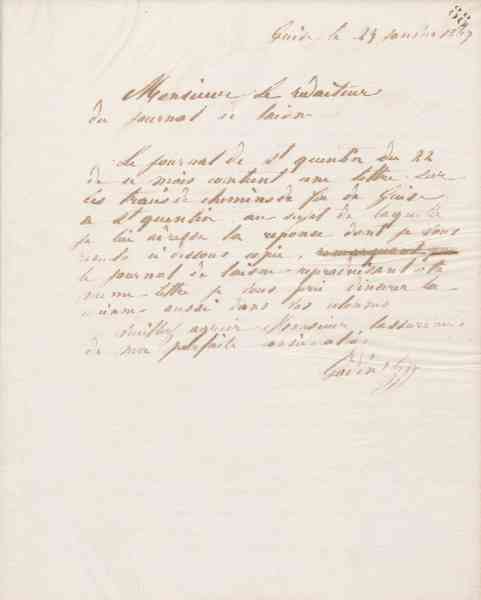 38
Guise le 23 1869
Monsieur le redacteur
du journal de laion
Le journal de st quentin du 22
de ce mois contient une lettre sur
les de chemins de fer de Guise
a st quentin au sujet de laquelle
je lui adresse la reponse dont je vous
ci dessous copie,
le journal de laisne reproduisant cette
meme lettre je vous prie dinserer la
mienne aussi dans vos colonnes
veuillez agreer Monsieur lassurance
de ma parfaite
Godin